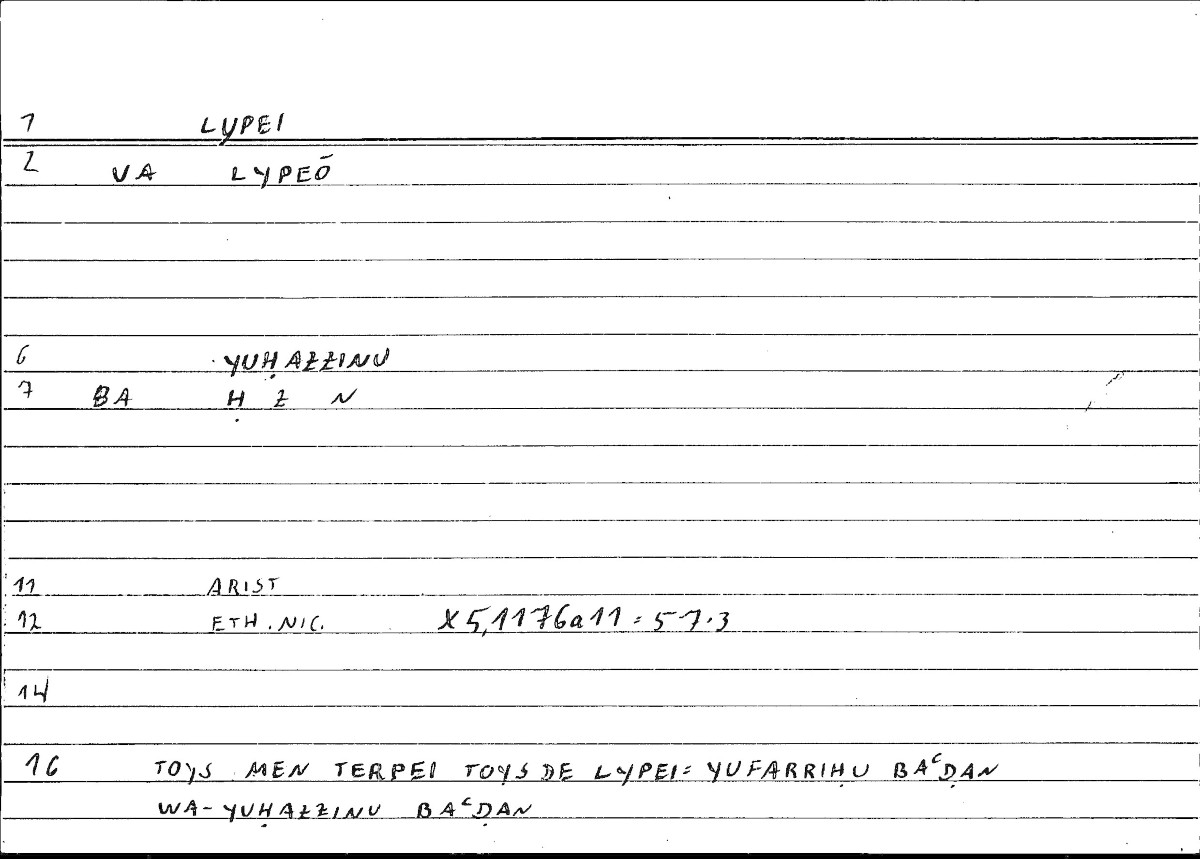 1 LYPEI
2 VA LYPEŌ
6 YUḤAZZINU
7 BA Ḥ Z N
11 ARIST
12 ETH. NIC. X5,1176a11 = 57.3
14
16 TOYS MEN TERPEI TOYS DE LYPEI = YUFARRIḤU BAᶜḌAN
WA-YUḤAZZINU BAᶜḌAN